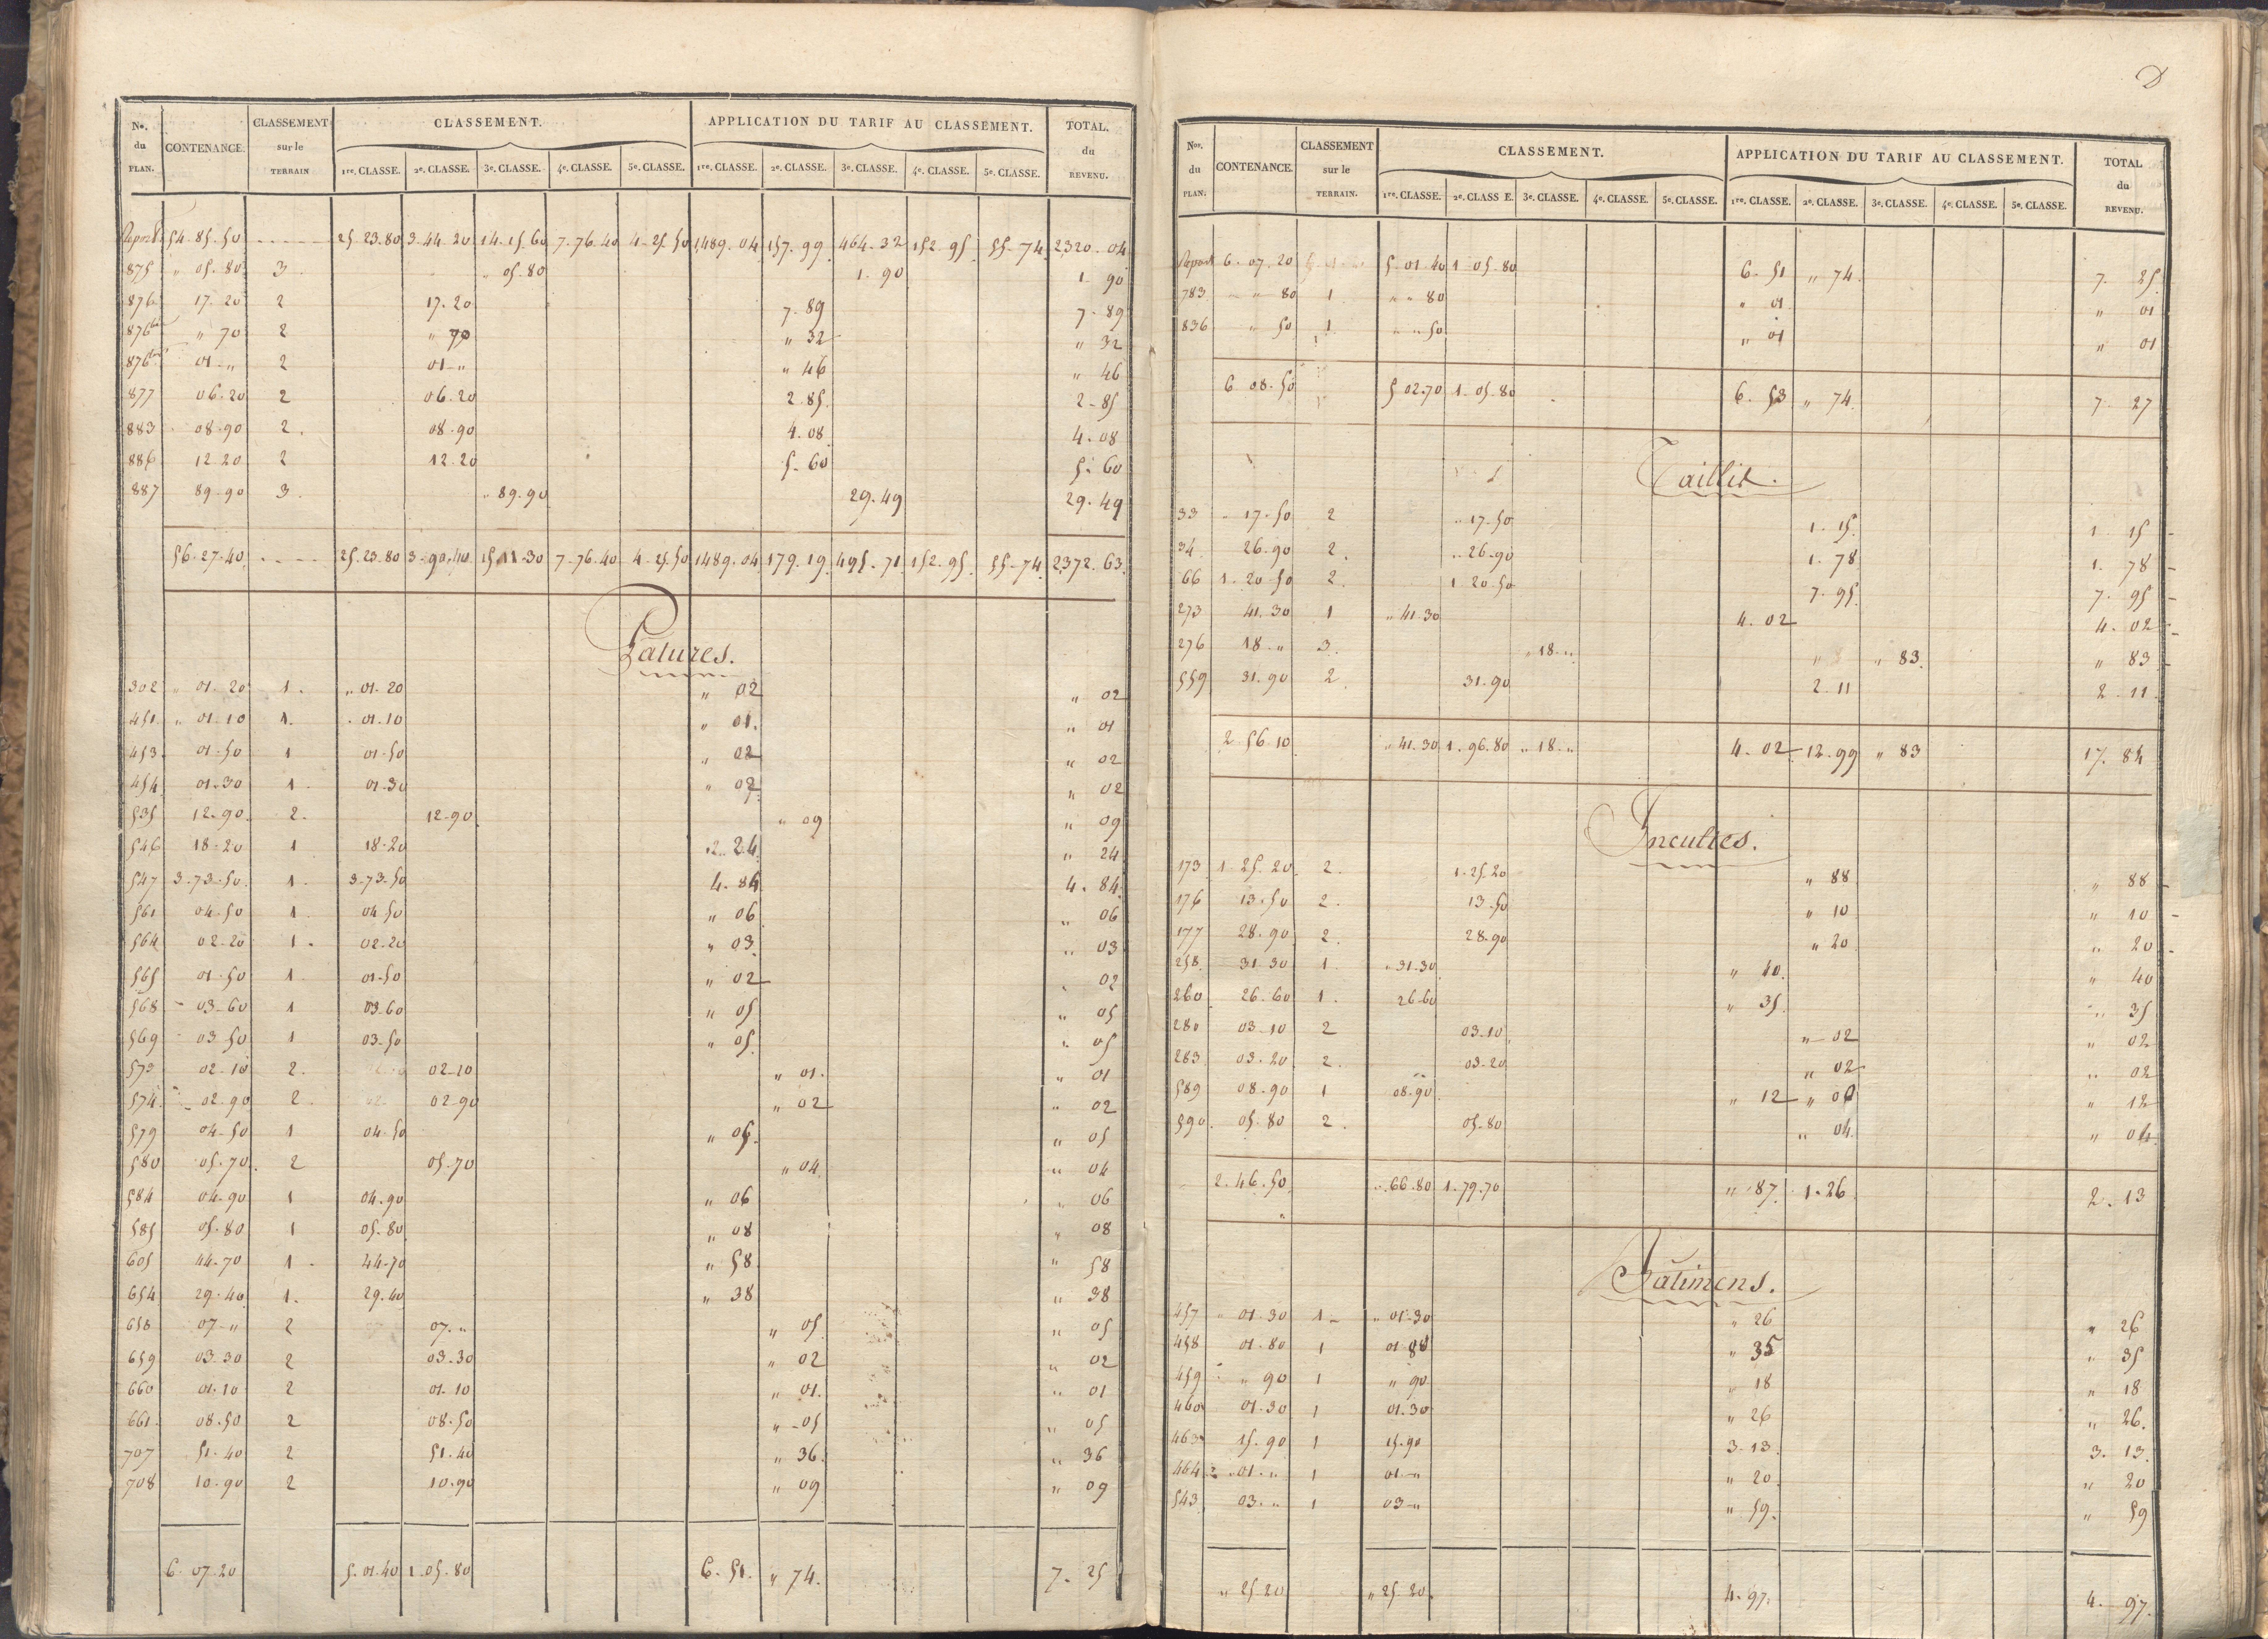 No. du PLAN. CONTENANCE. CLASSEMENT sur le TERRAIN CLASSEMENT. APPLICATION DU TARIF AU CLASSEMENT. TOTAL. du REVENU.
1re. CLASSE. 2e. CLASSE. 3e. CLASSE. 4e. CLASSE. 5e. CLASSE. 1re. CLASSE. 2e. CLASSE. 3e. CLASSE. 4e. CLASSE. 5e. CLASSE.
Report 54.85.50 25.23.80 3.44.20 14.15.60 7.76.40 4.25.50 1489.04 157.99 464.32 152.95 55.74 2320.04
875 " 05.80 3 " 05.80 1.90 1.90
876 17.20 2 17.20 7.89 7.89
876bis " 70 2 " 70 " 32 " 32
876ter 01 " 2 01 " " 46 " 46
877 06.20 2 06.20 2.85 2.85
883 08.90 2. 08.90 4.08 4.08
886 12.20 2 12.20 5.60 5.60
887 89.90 3. " 89.90 29.49 29.49
56.27.40 25.23.80 3.90.40 15.11.30 7.76.40 4.25.50 1489.04 179.19 495.71 152.95 55.74 2372.63
Patures.
302 " 01.20 1. " 01.20 " 02 " 02
451 " 01.10 1. 01.10 " 01. " 01
453 01.50 1 01.50 " 02 " 02
454 01.30 1. 01.30 " 02 " 02
535 12.90 2. 12.90 " 09 " 09
546 18.20 1 18.20 " 24 " 24
547 3.73.50 1. 3.73.50 4.84 4.84
561 04.50 1. 04.50 " 06 " 06
564 02.20 1. 02.20 " 03 " 03
565 01.50 1. 01.50 " 02 " 02
568 03.60 1 03.60 " 05 " 05
569 03.50 1 03.50 " 05. " 05
573 02.10 2. 02.10 " 01. " 01
574 02.90 2. 02.90 " 02 " 02
579 04.50 1 04.50 " 05. " 05
580 05.70 2 05.70 " 04 " 04
584 04.90 1 04.90 " 06 " 06
585 05.80 1 05.80 " 08 " 08
605 44.70 1. 44.70 " 58 " 58
654 29.40 1. 29.40 " 38 " 38
658 07 " 2 07. " " 05 " 05
659 03.30 2 03.30 " 02 " 02
660 01.10 2 01.10 " 01. " 01
661 08.50 2 08.50 " 05 " 05
707 51.40 2 51.40 " 36. " 36
708 10.90 2 10.90 " 09 " 09
6.07.20 5.01.40 1.05.80 6.51. " 74. 7.25
D
Nos. du PLAN. CONTENANCE. CLASSEMENT sur le TERRAIN. CLASSEMENT. APPLICATION DU TARIF AU CLASSEMENT. TOTAL du REVENU.
1re. CLASSE. 2e. CLASS E. 3e. CLASSE. 4e. CLASSE. 5e. CLASSE. 1re. CLASSE. 2e. CLASSE. 3e. CLASSE. 4e. CLASSE. 5e. CLASSE.
Report 6.07.20 5.01.40 1.05.80 6.51 " 74 7.25
783 " 80 1 " " 80 " 01 " 01
836 " 50 1 " " 50 " 01 " 01
6.08.50 5.02.70 1.05.80 6.53 " 74 7.27
Taillis.
33 17.50 2 " 17.50 1.15 1.15
34 26.90 2. " 26.90 1.78 1.78
66 1.20.50 2. 1.20.50 7.95. 7.95
273 41.30 1 " 41.30 4.02 4.02
276 18 " 3. " 18 " " 83 " 83
559 31.90 2. 31.90 2.11 2.11
2.56.10 " 41.30 1.96.80 " 18 " 4.02 12.99 " 83 17.84
Incultes.
173 1.25.20 2. 1.25.20 " 88 " 88
176 13.50 2. 13.50 " 10 " 10
177 28.90 2. 28.90 " 20 " 20
258 31.30 1. " 31.30 " 40. " 40
260 26.60 1. 26.60 " 35 " 35
280 03.10 2 03.10 " 02 " 02
283 03.20 2. 03.20 " 02 " 02
589 08.90 1 08.90 " 12 " 12
590 05.80 2. 05.80 " 04. " 04
2.46.50 " 66.80 1.79.70 " 87 1.26 2.13
Batimens.
457 " 01.30 1 " 01.30 " 26 " 26
458 01.80 1 01.80 " 35 " 35
459 " 90 1 " 90 " 18 " 18
460 01.30 1 01.30 " 26 " 26.
463 15.90 1 15.90 3.13. 3.13.
464 01. " 1 01 " " 20 " 20
543 03. " 1 03 " " 59. " 59
" 25.20 " 25.20 4.97. 4.97.